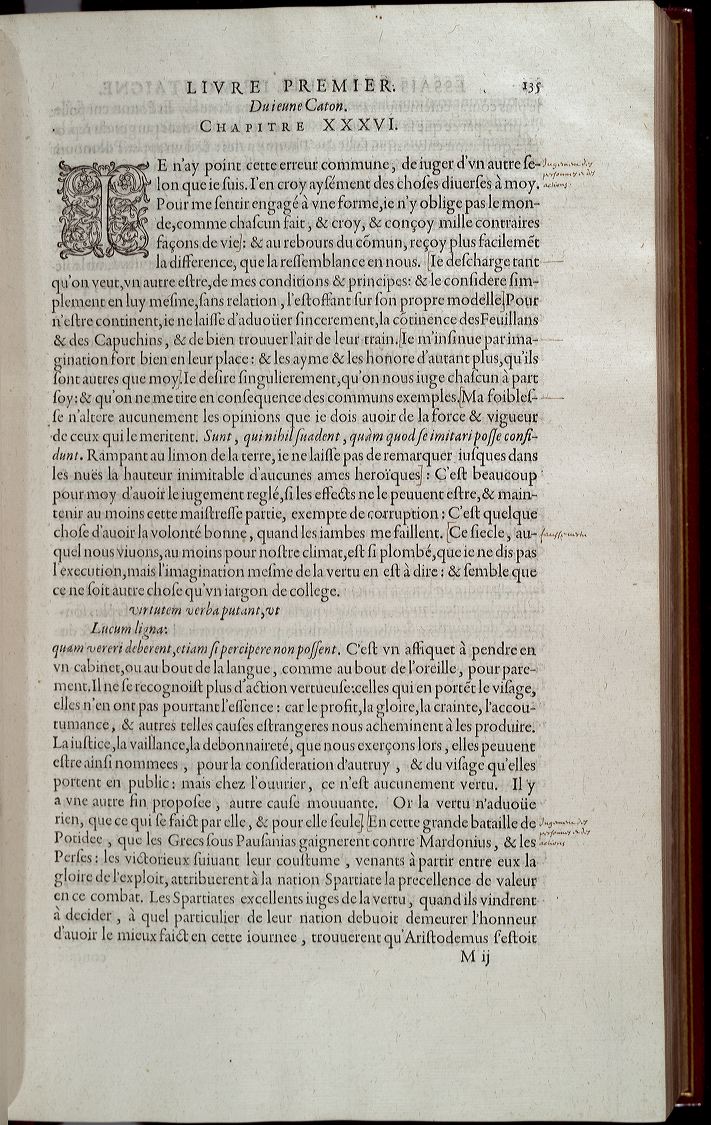 LIVRE PREMIER. 135
Du ieune Caton.
CHAPITRE XXXVI.
IE n'ay point cette erreur commune, de iuger d'vn autre ſe-
lon que ie ſuis. I'en croy ayſément des choſes diuerſes à moy.
Pour me ſentir engagé à vne forme, ie n'y oblige pas le mon-
de, comme chaſcun fait, & croy, & conçoy mille contraires
façons de vie]: & au rebours du cõmun, reçoy plus facilemẽt
la difference, que la reſſemblance en nous. [Ie deſcharge tant
qu'on veut, vn autre eſtre, de mes conditions & principes: & le conſidere ſim-
plement en luy meſme, ſans relation, l'eſtoffant ſur ſon propre modelle.]Pour
n'eſtre continent, ie ne laiſſe d'aduoüer ſincerement, la cõtinence des Feuillans
& des Capuchins, & de bien trouuer l'air de leur train.[Ie m'inſinue par ima-
gination fort bien en leur place: & les ayme & les honore d'autant plus, qu'ils
ſont autres que moy.]Ie deſire ſingulierement, qu'on nous iuge chaſcun à part
ſoy: & qu'on ne me tire en conſequence des communs exemples.[Ma foibleſ-
ſe n'altere aucunement les opinions que ie dois auoir de la force & vigueur
de ceux qui le meritent. Sunt, qui nihil ſuadent, quàm quod ſe imitari poſſe confi-
dunt. Rampant au limon de la terre, ie ne laiſſe pas de remarquer iuſques dans
les nuës la hauteur inimitable d'aucunes ames heroïques] : C'eſt beaucoup
pour moy d'auoir le iugement reglé, ſi les effects ne le peuuent eſtre, & main-
tenir au moins cette maiſtreſſe partie, exempte de corruption : C'eſt quelque
choſe d'auoir la volonté bonne, quand les iambes me faillent. [Ce ſiecle, au-
quel nous viuons, au moins pour noſtre climat, eſt ſi plombé, que ie ne dis pas
l'execution, mais l'imagination meſme de la vertu en eſt à dire : & ſemble que
ce ne ſoit autre choſe qu'vn iargon de college.
virtutem verba putant, vt
Lucum ligna:
quam vereri deberent, etiam ſi percipere non poſſent. C'eſt vn affiquet à pendre en
vn cabinet, ou au bout de la langue, comme au bout de l'oreille, pour pare-
ment. Il ne ſe recognoiſt plus d'action vertueuſe: celles qui en portẽt le viſage,
elles n'en ont pas pourtant l'eſſence : car le profit, la gloire, la crainte, l'accou-
tumance, & autres telles cauſes eſtrangeres nous acheminent à les produire.
La iuſtice, la vaillance, la debonnaireté, que nous exerçons lors, elles peuuent
eſtre ainſi nommees, pour la conſideration d'autruy, & du viſage qu'elles
portent en public : mais chez l'ouurier, ce n'eſt aucunement vertu. Il y
a vne autre fin propoſee, autre cauſe mouuante. Or la vertu n'aduoüe
rien, que ce qui ſe faict par elle, & pour elle ſeule] [En cette grande bataille de
Potidee, que les Grecs ſous Pauſanias gaignerent contre Mardonius, & les
Perſes : les victorieux ſuiuant leur couſtume, venants à partir entre eux la
gloire de l'exploit, attribuerent à la nation Spartiate la precellence de valeur
en ce combat. Les Spartiates excellents iuges de la vertu, quand ils vindrent
à decider, à quel particulier de leur nation debuoit demeurer l'honneur
d'auoir le mieux faict en cette iournee, trouuerent qu'Ariſtodemus ſ'eſtoit
M ij